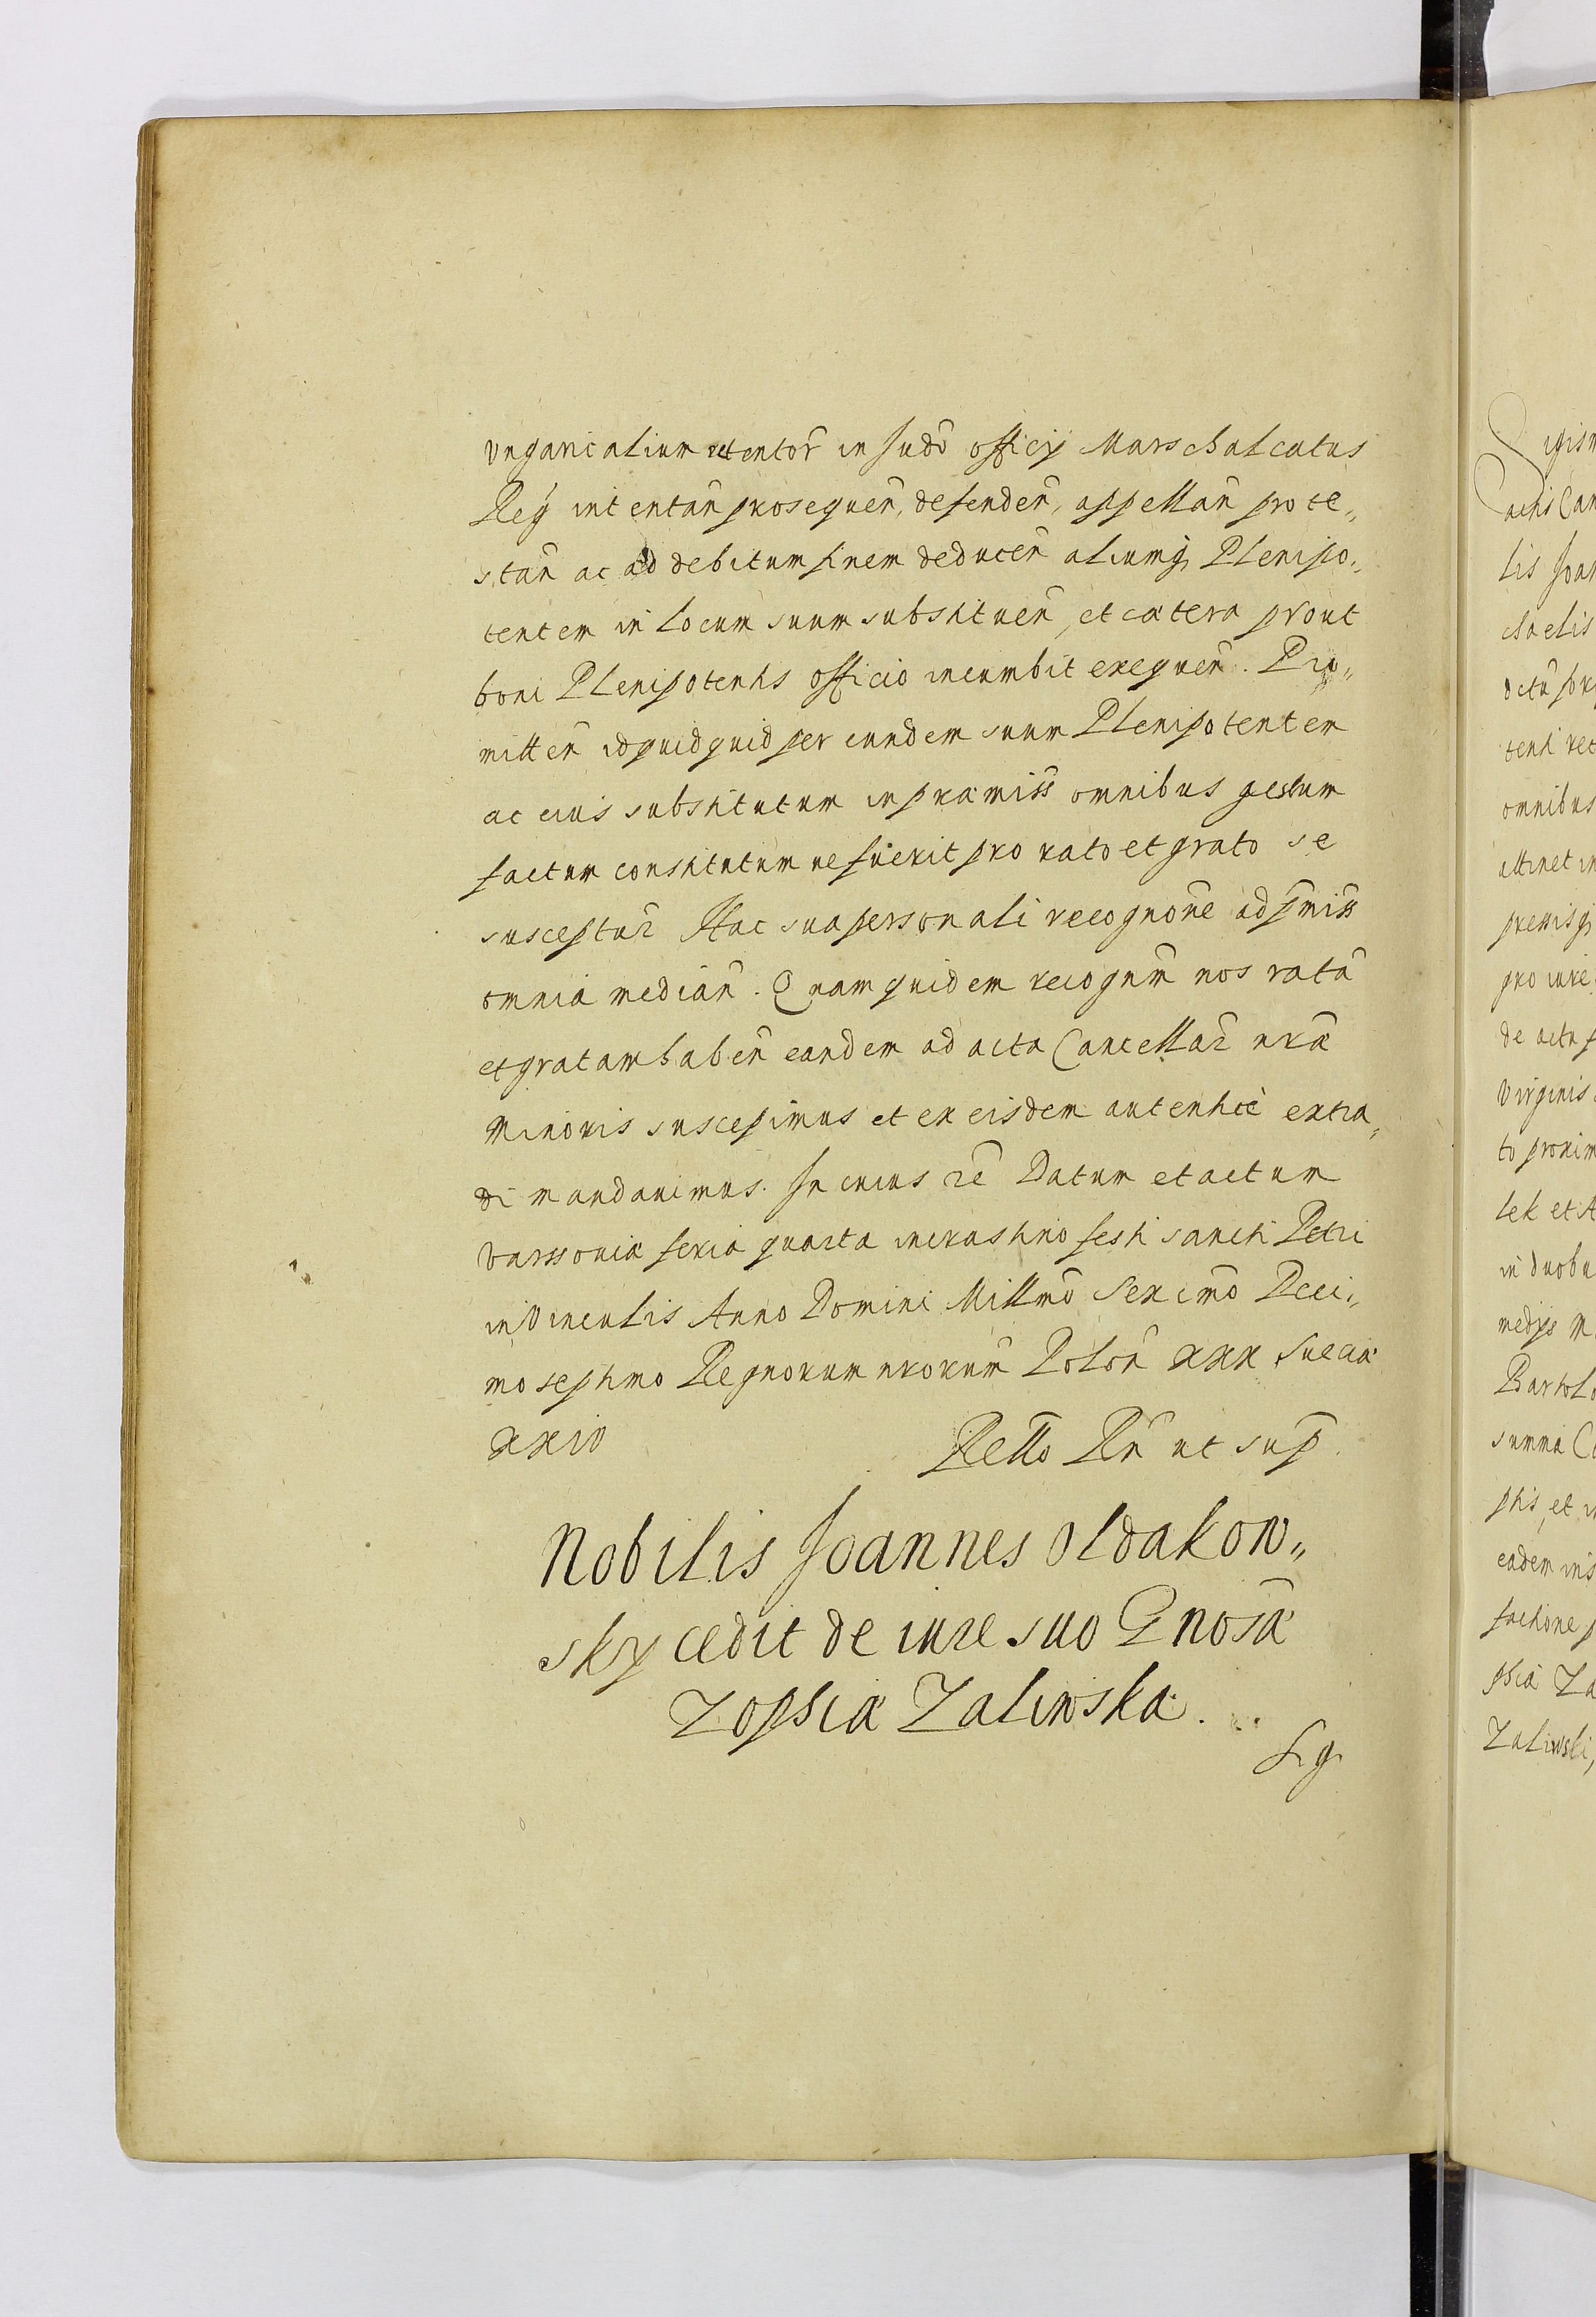 Ungaricalium detentor̄ in Judō officÿ Marschalcatus
Regÿ intentan̄ prosequen̄, defenden̄, appellan̄ prote„
stan̄ ac ad debitum finem deducen̄ aliumq́ Plenipo„
tentem in locum suum substituen̄, et cætera prout
boni Plenipotentis officio incumbit exequen̄. Pro„
mitten̄ id quidquid per eundem suum Plenipotentem
ac eius substitutum in præmiss̄ omnibus gestum
factum constitutum ue fuerit pro rato et grato se
susceptur̄ Hac sua personali recognōne ad p̄miss̄
omnia median̄. Quam quidem recognm̄ nos ratā
et gratam haben̄ eandem ad acta Cancellar̄ nræ
Minoris suscepimus et ex eisdem autentice extra„
di mandauimus. In cuius rē Datum et actum
Varssouiæ feria quarta in crastino festi sancti Petri
in Vinculis Anno Domini Millmō Sexcmō Deci„
mo septimo Regnorum nrorum̄ Polon̄ xxx Sueciæ
xxiv
Rello Rn̄ ut sup̄.
Nobilis Joannes Oldakow„
sky cedit de iure suo Gnosǣ
Zophiæ Zalinska.
Sig
Sigism
achis Can
lis Joan
chaelis
omnibus
attinet in
pro iure
de actu
Virginis
to proxim
lek et A
in duobu
medÿs M
Bartol
summa C
ptis, et in
eadem ins
factione p
phiæ Za
Zaliwski,